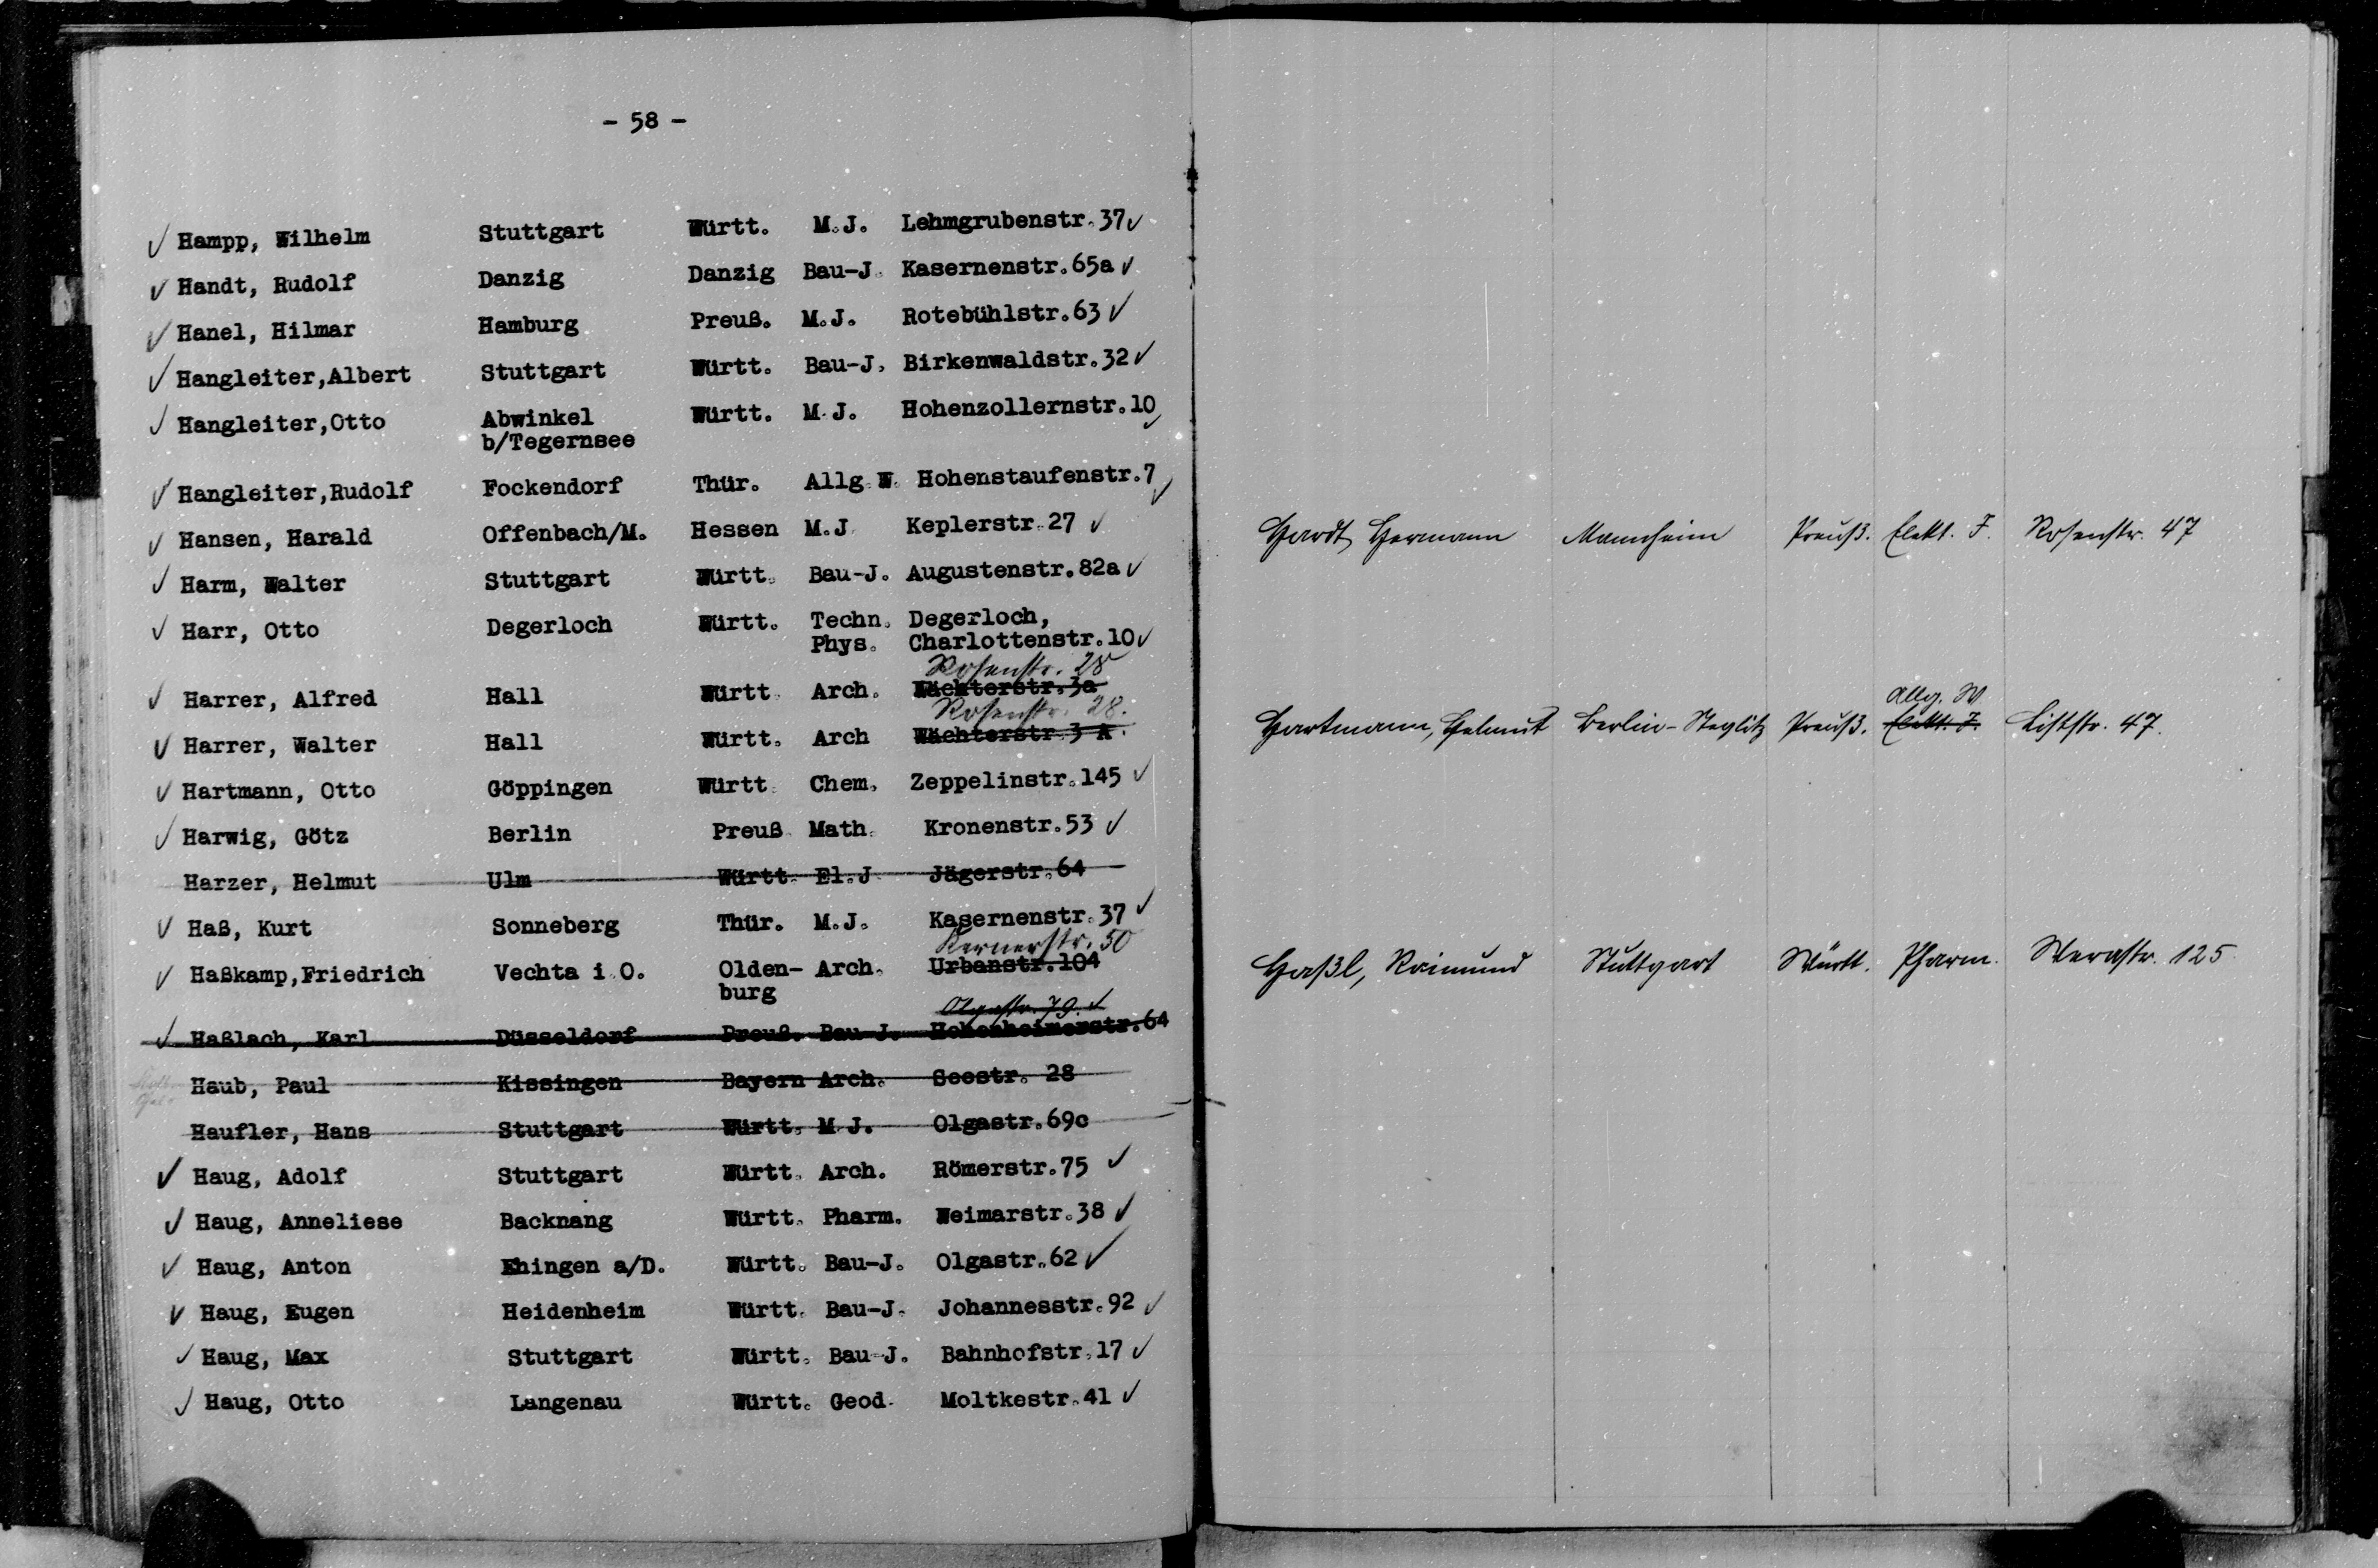 - 58 -
✓ Hampp, Wilhelm Stuttgart Württ. M.J. Lehmgrubenstr.37 ✓
✓ Handt, Rudolf Danzig Danzig Bau-J. Kasernenstr.65a ✓
✓ Hanel, Hilmar Hamburg Preuß. M.J. Rotebühlstr.63 ✓
✓ Hangleiter,Albert Stuttgart Württ. Bau-J. Birkenwaldstr.32 ✓
✓ Hangleiter,Otto Abwinkel Württ. M.J. Hohenzollernstr.10 ✓
b/Tegernsee
✓ Hangleiter,Rudolf Fockendorf Thür. Allg.W. Hohenstaufenstr.7 ✓
✓ Hansen, Harald Offenbach/M. Hessen M.J. Keplerstr.27 ✓
✓ Harm, Walter Stuttgart Württ. Bau-J. Augustenstr.82a ✓
✓ Harr, Otto Degerloch Württ. Techn. Degerloch,
Phys. Charlottenstr.10 ✓
Rosenstr. 28
✓ Harrer, Alfred Hall Württ. Arch. Wächterstr.3a
Rosenstr. 28.
✓ Harrer, Walter Hall Württ. Arch Wächterstr.3 A.
✓ Hartmann, Otto Göppingen Württ. Chem. Zeppelinstr.145 ✓
✓ Harwig, Götz Berlin Preuß. Math. Kronenstr.53 ✓
Harzer, Helmut Ulm Württ. El.J. Jägerstr.64
✓ Haß, Kurt Sonneberg Thür. M.J. Kasernenstr.37 ✓
Kernerstr. 50
✓ Haßkamp,Friedrich Vechta i.O. Olden- Arch. Urbanstr.104
burg
Olgastr. 79. ✓
✓ Haßlach, Karl Düsseldorf Preuß. Bau-J. Hohenheimerstr.64
Haub, Paul Kissingen Bayern Arch. Seestr. 28
Haufler, Hans Stuttgart Württ. M.J. Olgastr.69c
✓ Haug, Adolf Stuttgart Württ. Arch. Römerstr.75 ✓
✓ Haug, Anneliese Backnang Württ. Pharm. Weimarstr.38 ✓
✓ Haug, Anton Ehingen a/D. Württ. Bau-J. Olgastr.62 ✓
✓ Haug, Eugen Heidenheim Württ. Bau-J. Johannesstr.92 ✓
✓ Haug, Max Stuttgart Württ. Bau-J. Bahnhofstr.17 ✓
✓ Haug, Otto Langenau Württ. Geod. Moltkestr.41 ✓
Hardt, Hermann Mannheim Preuß. Elekt. J. Rosenstr. 47
Allg. W
Hartmann, Helmut Berlin-Steglitz Preuß. Elekt. J. Liststr. 47.
Haßl, Raimund Stuttgart Württ. Pharm. Werastr. 125